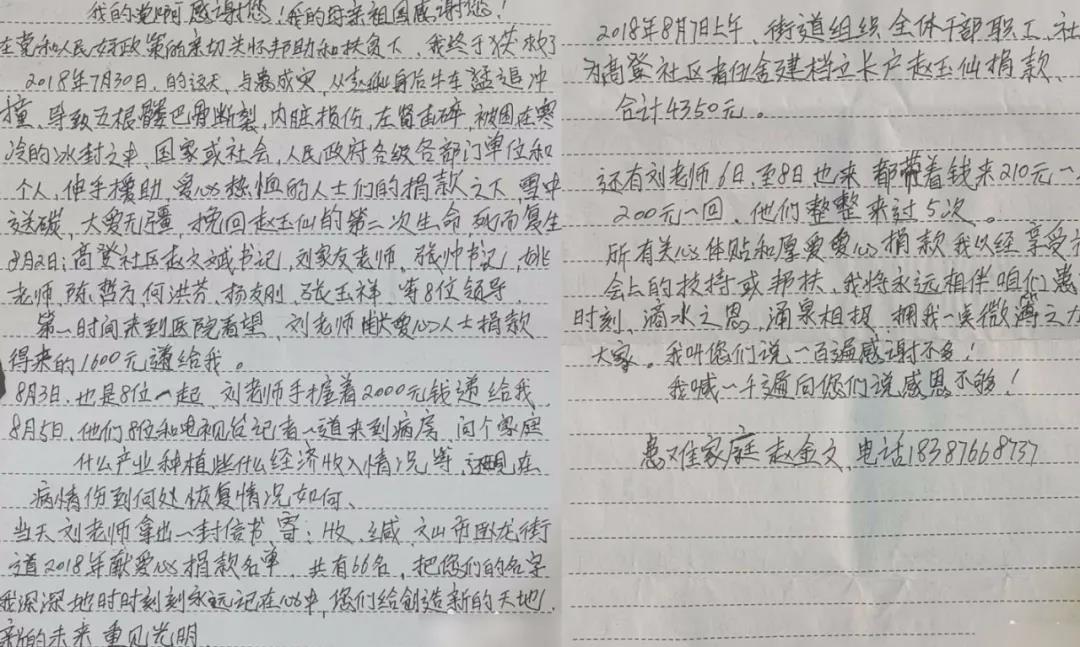 我的党啊感谢您！我的母亲祖国感谢您！
在党和人民好政策的亲切关怀帮助和扶负下，我终于获救了
2018年7月30日，的这天，与患成灾，从赵仙身后牛车猛追冲
撞、导致五根髅巴骨断裂，内脏损伤，左肾击碎，被困在寒
冷的冰封之中，国家或社会，人民政府各级各部门单位和
个人，伸手援助，爱心热恤的人士们的捐款之下，雪中
送碳，大爱无疆，挽回赵玉仙的第二次生命 死而复生
8月2日；高登社区赵文斌书记，刘家友老师，张帅书记，姚
老师，陈哲方 何洪芳、杨友刚，张玉祥，等8位领导，
第一时间来到医院看望，刘老师献爱心人士捐款
得来的1600元递给我。
8月3日，也是8位一起，刘老师手握着2000元钱递给我，
8月5日，他们8位和电视台记者一道来到病房，问个家庭
什么产业种植些什么经济收入情况等，还现在
病情伤到何处恢复情况如何、
当天刘老师拿出一封信书，写；收，缄，文山市卧龙街
道2018年献爱心捐款名单，共有66名，把您们的名字
我深深地时时刻刻永远记在心中，您们给创造新的天地，
新的未来 重见光明
2018年8月7日上午，街道组织全体干部职工、社
为高登社区者伍舍建档立卡户赵玉仙捐款、
合计4350元。
还有刘老师6日，至8日也来 都带着钱来210元一
200元一回，他们整整来过5次。
所有关心体贴和厚爱爱心捐款我以经享受
会上的扶持或帮扶，我将永远相伴咱们患
时刻，滴水之恩，涌泉相报，拥我一点微薄之力
大家。我叫您们说一百遍感谢不多！
我喊一千遍向您们说感恩不够！
患难家庭 赵金文，电话18387668737